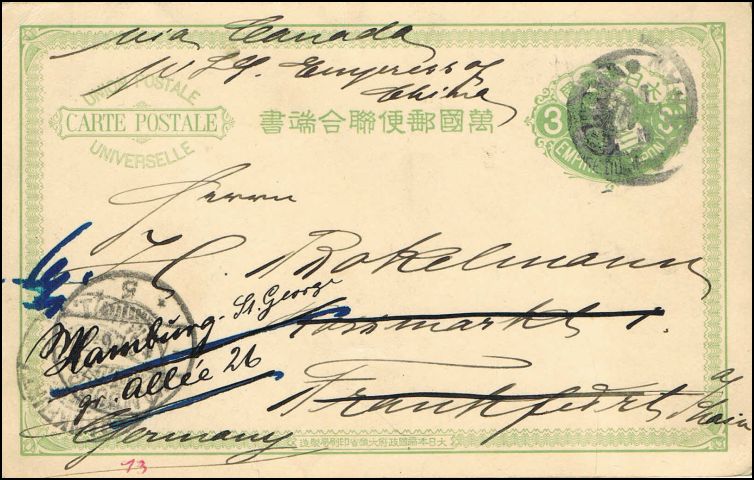 via Canada
Empress of
China
UNION POSTALE
CARTE POSTALE
UNIVERSELLE
書端合聯便郵國萬
3
Herrn
H. Bokelmann
Hamburg - St. George
Rossmarkt 1.
gr. Allée 26
Frankfurt a/
Main
Germany
大日本帝國政府大藏省印刷局製造
13